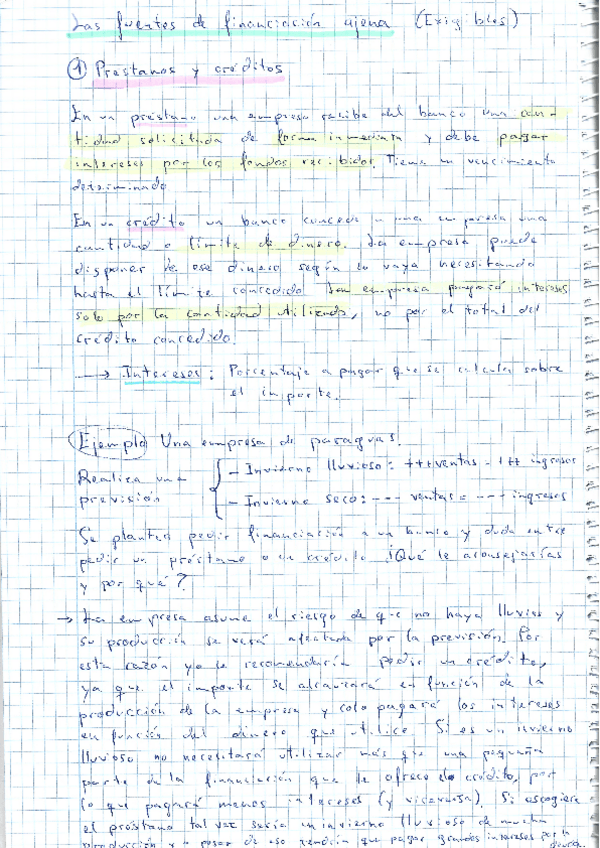 Las fuentes de financiación ajena (Exigibles)
① Préstamos y créditos
En un préstamo una empresa recibe del banco una can-
tidad solicitada de forma inmediata y debe pagar
intereses por los fondos recibidos. Tiene un vencimiento
determinado.
En un crédito un banco concede a una empresa una
cantidad o límite de dinero. La empresa puede
disponer de ese dinero según lo vaya necesitando
hasta el límite concedido. La empresa pagará intereses
solo por la cantidad utilizada, no por el total del
crédito concedido.
→ Intereses: Porcentaje a pagar que se calcula sobre
el importe.
Ejemplo Una empresa de paraguas.
Realiza una previsión
- Invierno lluvioso: +++ ventas - +++ ingresos
- Invierno seco: --- ventas = --- ingresos
Se plantea pedir financiación a un banco y duda entre
pedir un préstamo o un crédito ¿Qué le aconsejarías
y por qué?
→ La empresa asume el riesgo de que no haya lluvias y
su producción se verá afectada por la previsión. Por
esta razón yo le recomendaría pedir un crédito,
ya que el importe se alcanzará en función de la
producción de la empresa y solo pagará los intereses
en función del dinero que utilice. Si es un invierno
lluvioso no necesitará utilizar más que una pequeña
parte de la financiación que le ofrece el crédito, por
lo que pagará menos intereses (y viceversa). Si escogiera
el préstamo tal vez sería un invierno lluvioso de mucha
producción y a pesar de eso tendría que pagar grandes intereses por la
deuda.